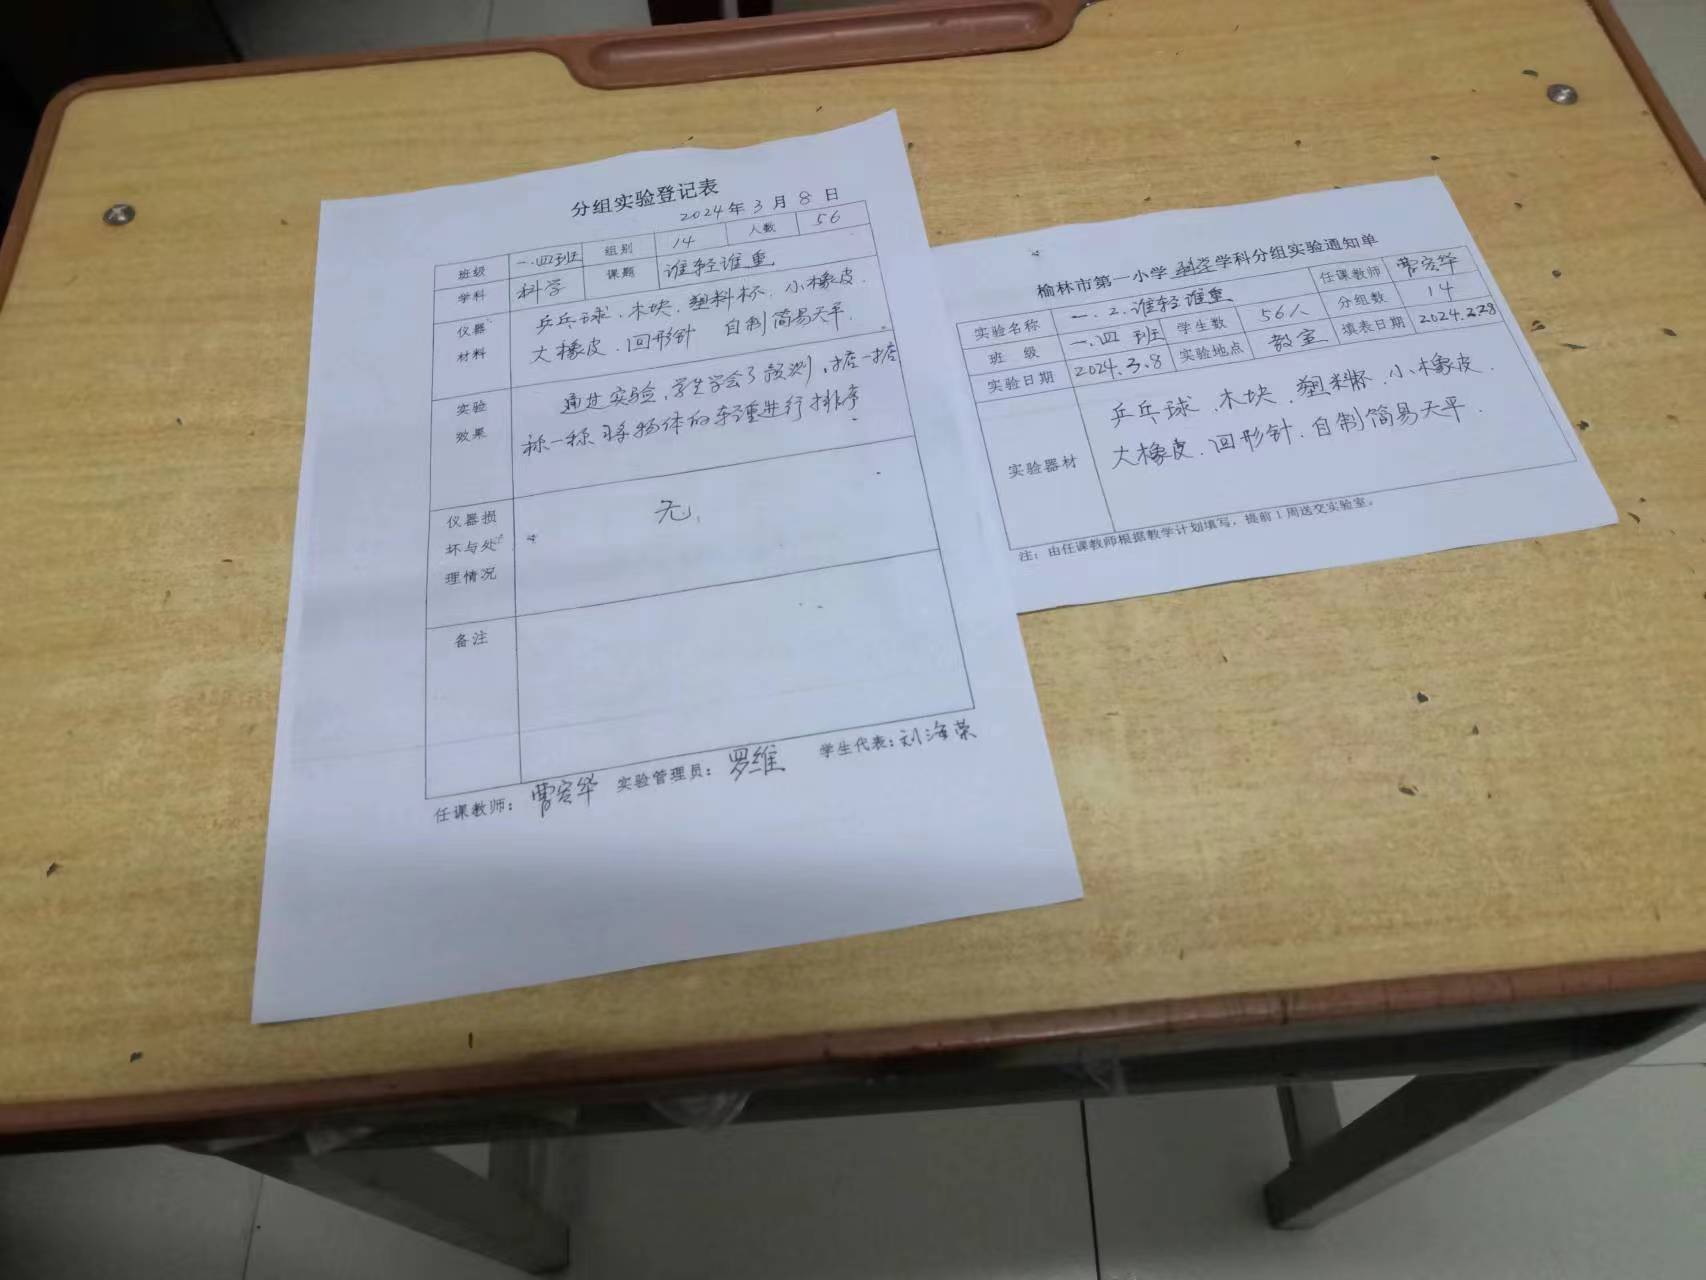 分组实验登记表
2024年3月8日
班级 一.四班 组别 14 人数 56
学科 科学 课题 谁轻谁重
仪器材料 乒乓球、木块、塑料杯、小橡皮、
大橡皮、回形针 自制简易天平.
实验效果 通过实验,学生学会了预测,掂一掂
称一称将物体的轻重进行排序
仪器损坏与处理情况 无
备注
任课教师: 曹宏华 实验管理员: 罗维 学生代表: 刘海荣
榆林市第一小学科学学科分组实验通知单
实验名称 一.2.谁轻谁重 任课教师 曹宏华
班 级 一.四 班 学生数 56人 分组数 14
实验日期 2024.3.8 实验地点 教室 填表日期 2024.2.28
实验器材 乒乓球、木块、塑料杯、小橡皮、
大橡皮、回形针、自制简易天平.
注:由任课教师根据教学计划填写,提前1周送交实验室。